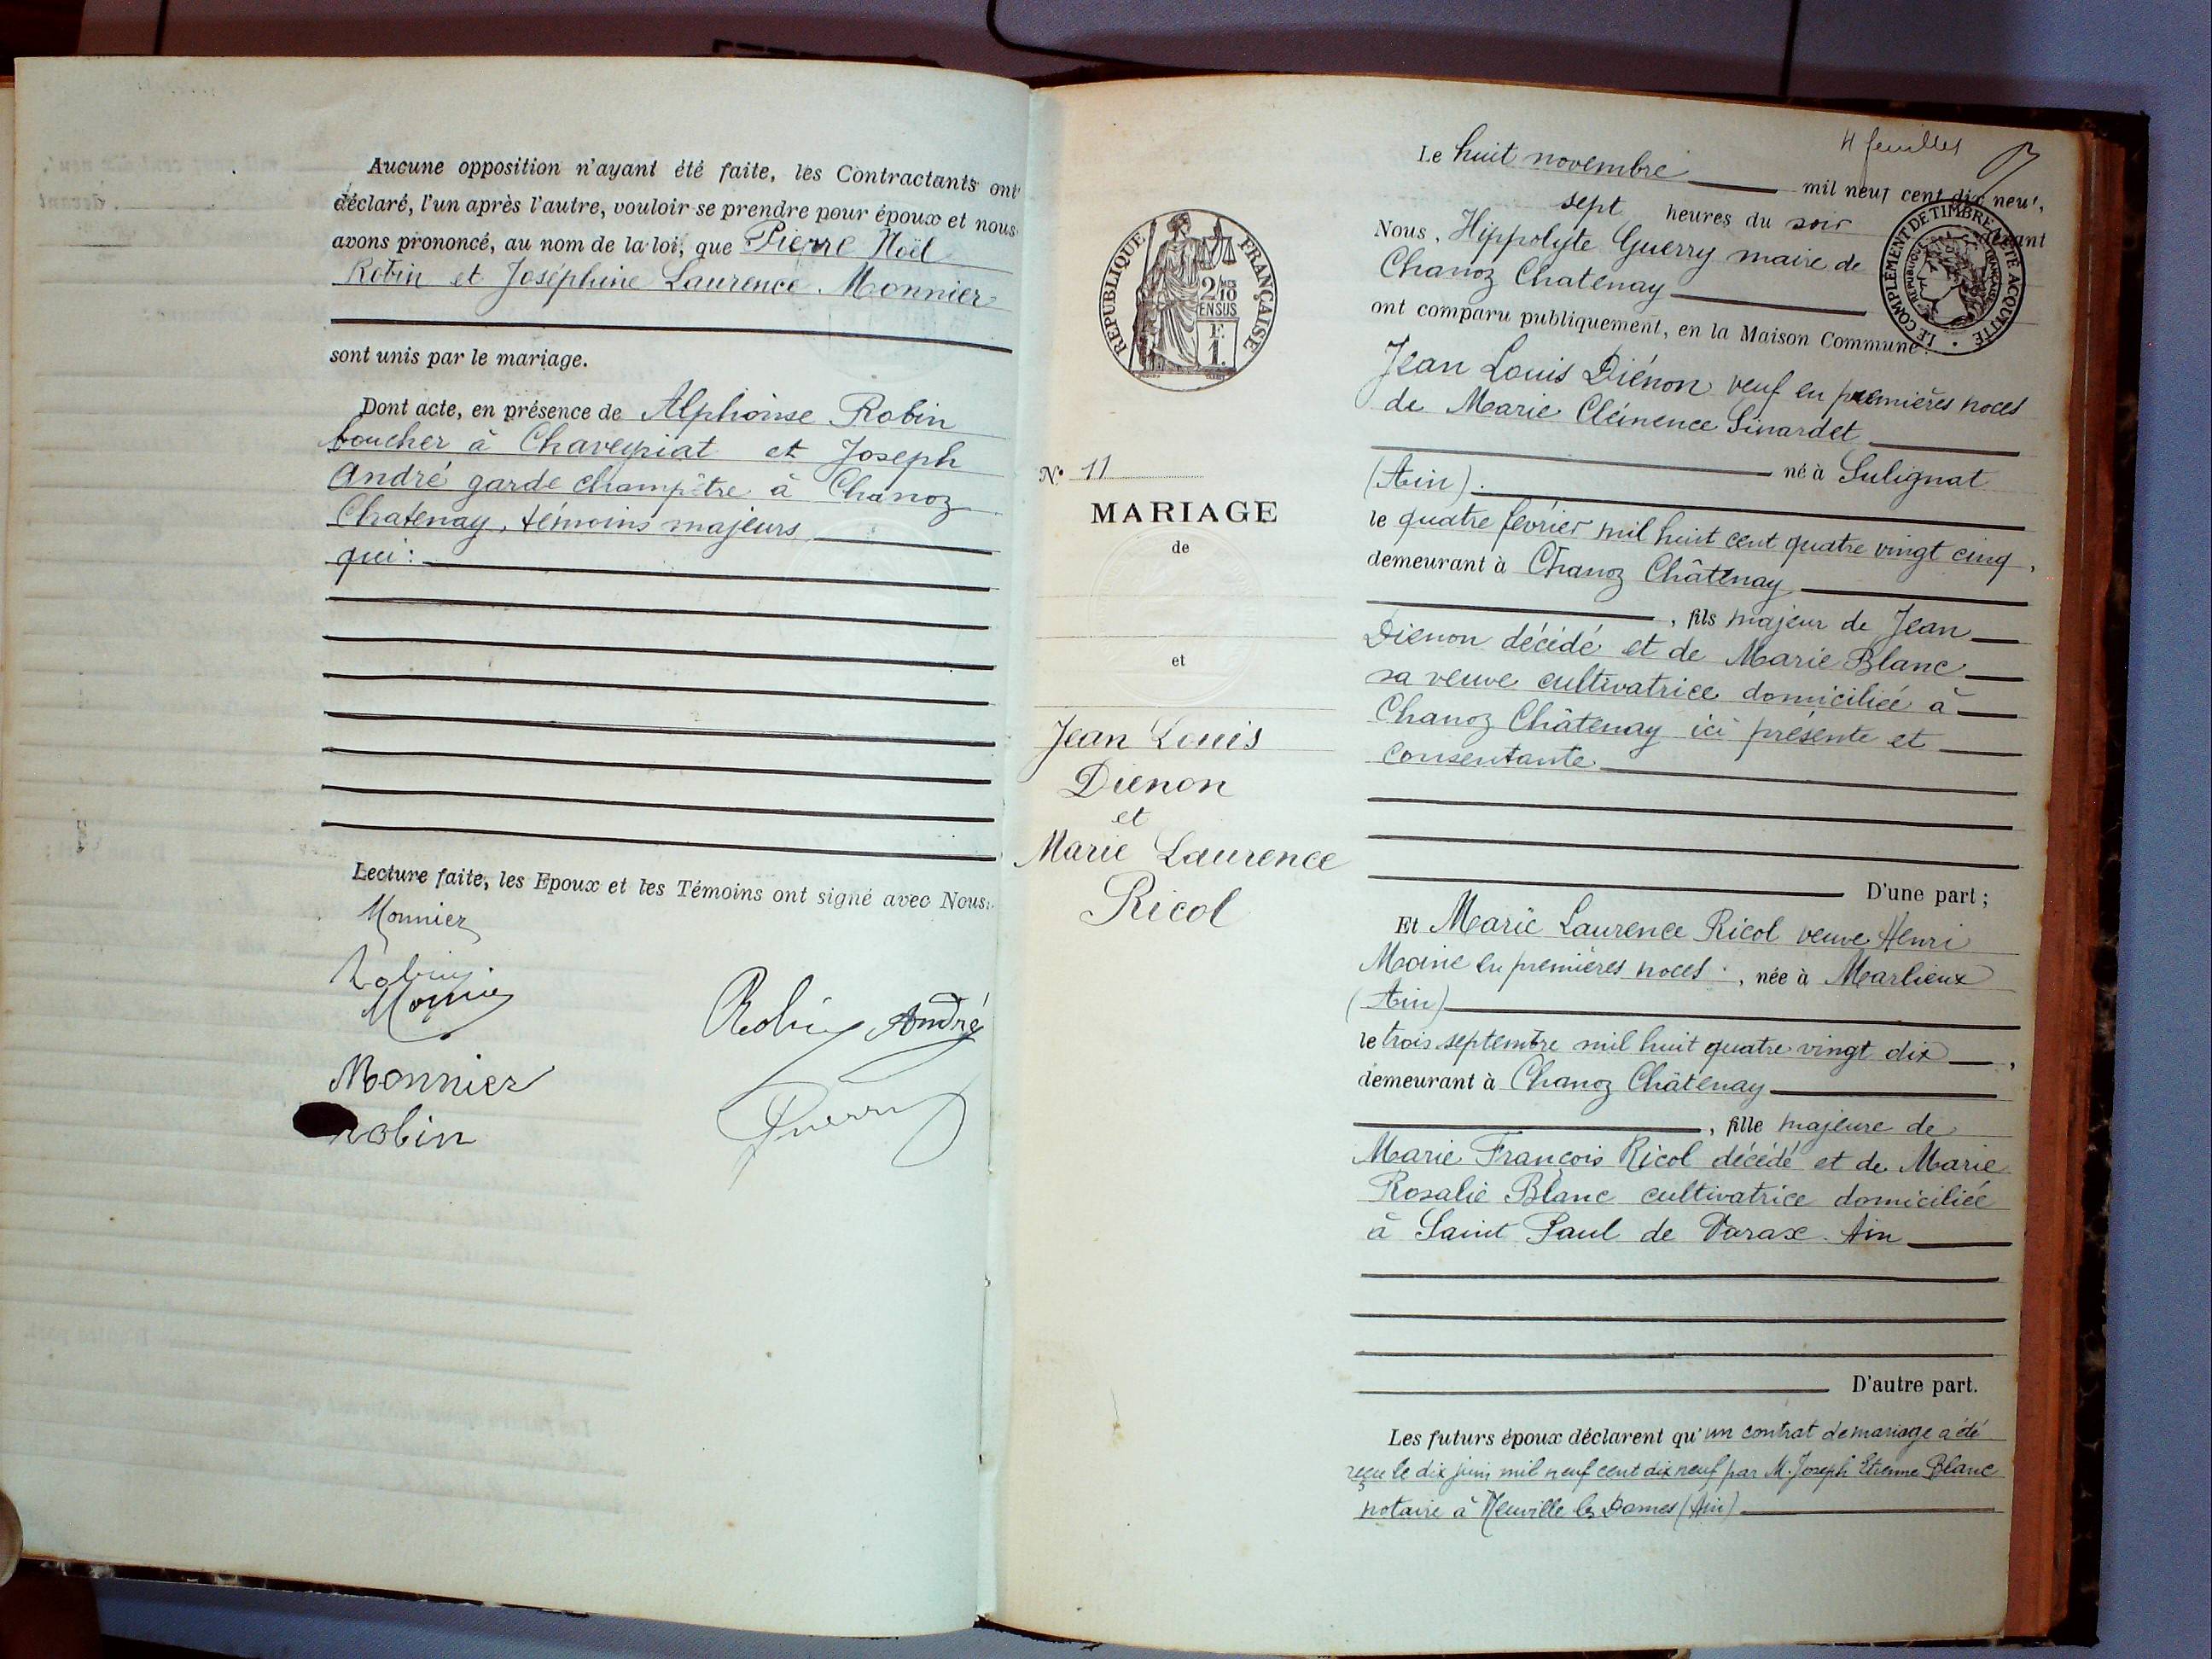 Aucune opposition n'ayant été faite, les Contractants ont
déclaré, l'un après l'autre, vouloir se prendre pour époux et nous
avons prononcé, au nom de la loi, que Pierre Noël
Robin et Joséphine Laurence Monnier
sont unis par le mariage.
Dont acte, en présence de Alphonse Robin
boucher à Chaveyriat et Joseph
André garde champêtre à Chanoz
Chatenay, témoins majeurs
qui :
Lecture faite, les Epoux et les Témoins ont signé avec Nous.
Monnier
Robin
Monnier
Robin André
Monnier
Guerry
robin
REPUBLIQUE FRANÇAISE
2/10 MES
EN SUS
F
1.
N° 11
MARIAGE
de
et
Jean Louis
Dienon
et
Marie Laurence
Ricol
4 feuilles
Le huit novembre mil neuf cent dix neuf,
sept heures du soir devant
Nous, Hippolyte Guerry maire de
Chanoz Chatenay
LE COMPLEMENT DE TIMBRE ETE ACQUITTE
REPUBLIQUE FRANÇAISE
ont comparu publiquement, en la Maison Commune :
Jean Louis Diénon veuf en premières noces
de Marie Clémence Sinardet
né à Sulignat
(Ain).
le quatre février mil huit cent quatre vingt cinq,
demeurant à Chanoz Châtenay
, fils majeur de Jean
Dienon décédé et de Marie Blanc
sa veuve cultivatrice domiciliée à
Chanoz Châtenay ici présente et
consentante
D'une part ;
Et Marie Laurence Ricol veuve Henri
Moine en premières noces, née à Marlieux
(Ain)
le trois septembre mil huit quatre vingt dix,
demeurant à Chanoz Châtenay
, fille majeure de
Marie François Ricol décédé et de Marie
Rosalie Blanc cultivatrice domiciliée
à Saint Paul de Varax. Ain
D'autre part.
Les futurs époux déclarent qu'un contrat de mariage a été
reçu le dix juin mil neuf cent dix neuf par M. Joseph Etienne Blanc
notaire à Neuville les Dames (Ain)